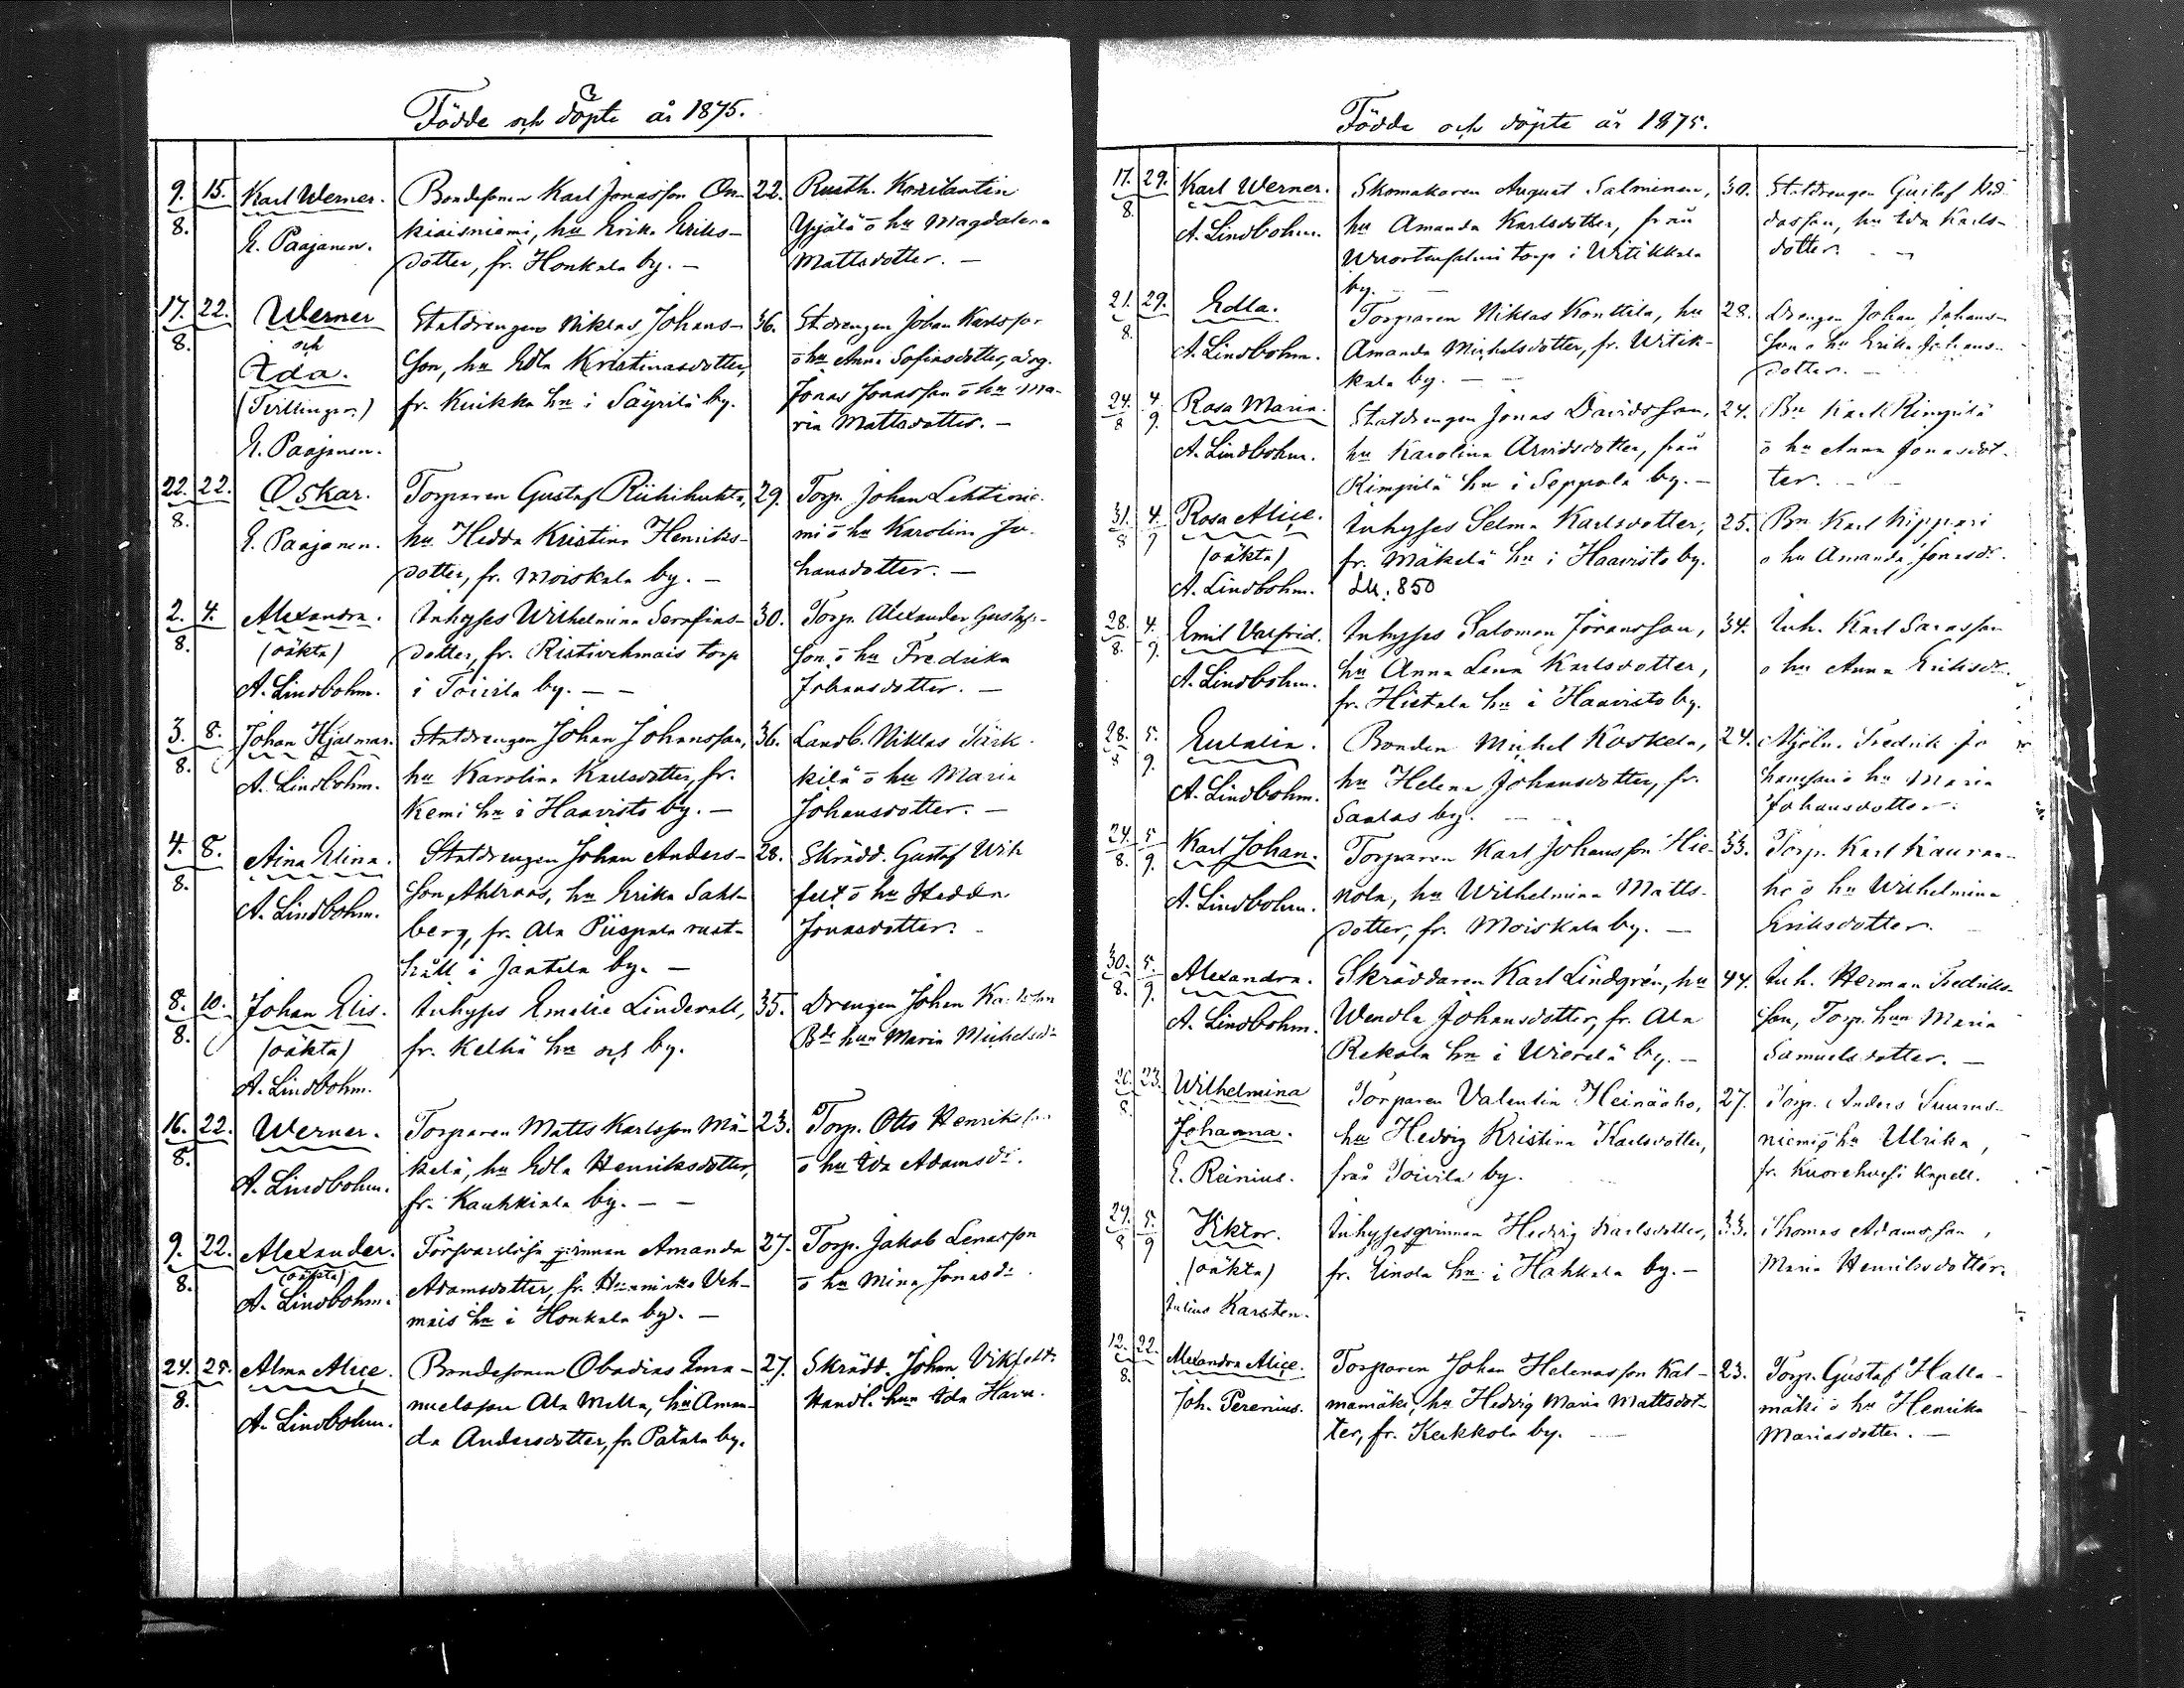 Födde och döpte år 1875.
9. 15. Karl Werner. Bondesonen Karl Jonasson On- 22. Rusth. Konstantin
8. E. Paajanen. kiaisniemi, hu Erika Eriks- Yrjälä o hu Magdalena
dotter, fr. Honkala by. — Mattsdotter. —
17. 22. Werner Statdrengen Niklas Johans- 36. St.drengen Johan Karlsson
8. och son, hu Edla Kristinasdotter, o hu Anna Sofiasdotter,
Ida. fr. Kuikka hn i Säyrilä by. Jonas Jonasson o hu Ma-
(Tvillingar) ria Mattsdotter. —
E. Paajanen.
22. 22. Oskar. Torparen Gustaf Riihihuhta, 29. Torp. Johan Lehtinie-
8. E. Paajanen. hu Hedda Kristina Henriks- mi o hu Karolina Jo-
dotter, fr. Moiskala by. — hansdotter. —
2. 4. Alexandra. Inhyses Wilhelmina Serafias- 30. Torp. Alexander Gustafs-
8. (oäkta) dotter, fr. Ristivehmais torp son o hu Fredrika
A. Lindbohm. i Toivila by. — — Johansdotter. —
3. 8. Johan Hjalmar. Statdrengen Johan Johansson, 36. Landb. Niklas Särk-
8. A. Lindbohm. hu Karolina Karlsdotter, fr. kilä o hu Maria
Kemi hn i Haavisto by. — Johansdotter. —
4. 8. Aina Elina. Statdrengen Johan Anders- 28. Skrädd. Gustaf Wik
8. A. Lindbohm. son Ahlroos, hu Erika Sahl- felt o hu Hedda
berg, fr. Ala Piispala rust- Jonasdotter.
håll i Janttila by. —
8. 10. Johan Elis. Inhyses Emelie Lindevall, 35. Drengen Johan Karlsson
8. (oäkta) fr. Kelhä hn och by. Bde hun Maria Michelsdr
A. Lindbohm.
16. 22. Werner. Torparen Matts Karlsson Mä- 23. Torp. Otto Henriksson
8. A. Lindbohm. kelä, hu Edla Henriksdotter, o hu Ida Adamsdr.
fr. Kauhkiala by. — —
9. 22. Alexander. Försvarslösa qvinnan Amanda 27. Torp. Jakob Lenasson
8. (oäkta) Adamsdotter, fr. Veh- o hu Mina Jonasdr.
A. Lindbohm. mais hn i Honkala by. —
24. 25. Alma Alice. Bondesonen Obadias Ema- 27. Skrädd. Johan Vikfelt.
8. A. Lindbohm. nuelsson Ala Mella, hu Aman- Handl. hun Ida Haru.
da Andersdotter, fr. Patala by.
Födde och döpte år 1875.
17. 29. Karl Werner. Skomakaren August Salminen, 30. Statdrengen Gustaf
8. A. Lindbohm. hu Amanda Karlsdotter, från dasson, hu Ida Karls-
Wuortensalmi torp i Witikkala dotter. —
by. —
21. 29. Edla. Torparen Niklas Konttila, hu 28. Drengen Johan Johans-
8. A. Lindbohm. Amanda Michelsdotter, fr. Witik- son o hu Erika Johans-
kala by. — dotter. —
24. 4. Rosa Maria. Statdrengen Jonas Davidsson, 24. Bn Karl Rimpilä
8 9. A. Lindbohm. hu Karolina Arvidsdotter, från o hu Anna Jonasdot-
Rimpilä hn i Seppola by. — ter. —
31. 4. Rosa Alice. Inhyses Selma Karlsdotter, 25. Bn Karl Kippari
8 9 (oäkta) fr. Mäkelä hn i Haavisto by. o hu Amanda Jonasdr.
A. Lindbohm. 850
28. 4. Emil Valfrid. Inhyses Salomon Jöransson, 34. Inh. Karl Sarasson
8. 9. A. Lindbohm. hu Anna Lena Karlsdotter, o hu Anna Eriksdr.
fr. Hietala hn i Haavisto by.
28. 5. Eulalia. Bonden Michel Koskela, 24. Mjöln. Fredrik Jo
8 9. A. Lindbohm. hu Helena Johansdotter, fr. hansson o hu Maria
Saalas by. — Johansdotter.
24. 5 Karl Johan. Torparen Karl Johansson Hie- 33. Torp. Karl
8. 9. A. Lindbohm. nola, hu Wilhelmina Matts- o hu Wilhelmina
dotter, fr. Moiskala by. — Eriksdotter.
30. 5. Alexandra. Skräddaren Karl Lindgrén, hu 44. Inh. Herman Fredriks-
8. 9. A. Lindbohm. Wendla Johansdotter, fr. Ala son, Torp. hun Maria
Rekola hn i Wierelä by. — Samuelsdotter. —
26. 23. Wilhelmina Torparen Valentin Heinäaho, 27. Torp. Anders Suuros-
8. Johanna. hu Hedvig Kristina Karlsdotter, niemi o hu Ulrika,
E. Reinius. från Toivila by. fr. Kuorehvesi Kapell.
29. 5. Viktor. Inhysesqvinnan Hedvig Karlsdotter, 33. Thomas Adamsson,
8 9 (oäkta) fr. Einola hn i Hahkala by. — Maria Henriksdotter.
Julius Karsten.
12. 22. Alexandra Alice. Torparen Johan Helenasson Kal- 23. Torp. Gustaf Halla-
8. Joh. Perenius. mamäki, hu Hedvig Maria Mattsdot- mäki o hu Henrika
ter, fr. Kerkkola by. — Mariasdotter. —